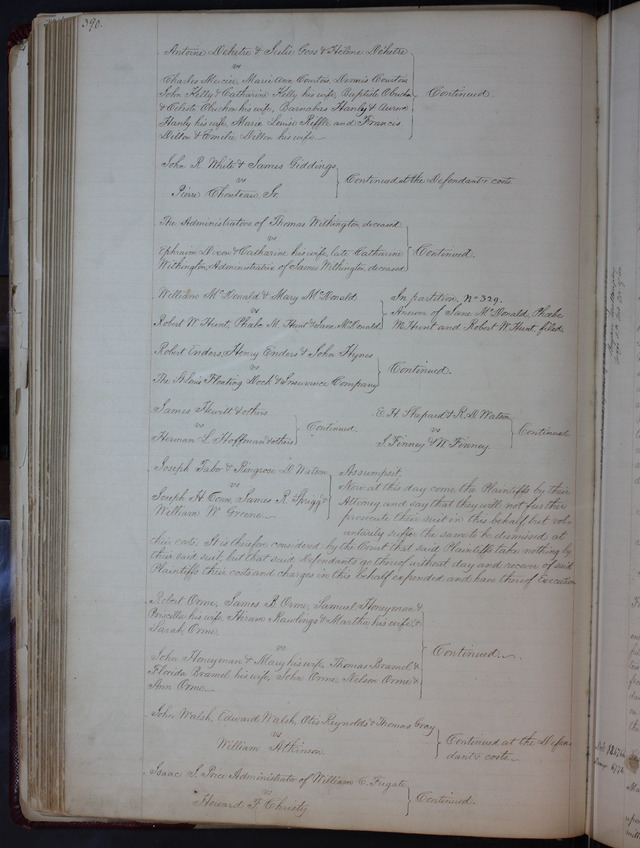 390.
Antoine Dehetre & Julie Goss & Helene Dehetre
vs
Charles Mercier, Marie Ann Courtois, Dennis Courtois
John Kelly & Catharine Kelly his wife, Baptiste
& Celeste his wife, Barnabas Hanly &
Hanly his wife, Maria Louise Riffle and Francis
Dillon & Emilie Dillon his wife
Continued
John R. White & James Giddings
vs
Pierre Chouteau Jr.
Continued at the Defendants costs.
The Administrators of Thomas Withington deceased
vs
Ephraim Dixon & Catharine his wife, late Catharine
Withington, Administratrix of James Withington, deceased
Continued.
William McDonald & Mary McDonald
vs
Robert W Hunt, Phebe M. Hunt & Jane McDonald
In partition, No 329.
Answer of Jane McDonald, Phebe
M. Hunt and Robert W. Hunt, filed.
Robert Enders, Henry Enders & John Hynes
vs
The St Louis Floating Dock & Insurance Company
Continued.
James Hewitt & others
vs
Herman L Hoffman & others
Continued.
E. H. Shepard & R. D. Watson
vs
J. Finney & W. Finney
Continued
Joseph Tabor & Ringrose D. Watson
vs
Joseph H Conn, James R. Sprigg &
William W. Greene
Assumpsit.
Now at this day come the Plaintiffs by their
Attorney and say that they will not further
prosecute their suit in this behalf but vol-
untarily suffer the same to be dismissed at
their costs. It is therefore considered by the Court that said Plaintiffs take nothing by
their said suit, but that said Defendants go thereof without day and recover of said
Plaintiffs their costs and charges in this behalf expended and have thereof Execution
Robert Orme, James B. Orme, Samuel Honeyman &
Priscilla his wife, Hiram Rawlings & Martha his wife, &
Sarah Orme
vs
John Honeyman & Mary his wife, Thomas Bramel &
Florida Bramel his wife, John Orme, Nelson Orme &
Ann Orme
Continued.
John Walsh, Edward Walsh, Otis Reynolds & Thomas Gray
vs
William Atkinson
Continued at the Defen-
dants costs
Isaac J. Price Administrator of William C. Fugate
vs
Howard F. Christy
Continued.